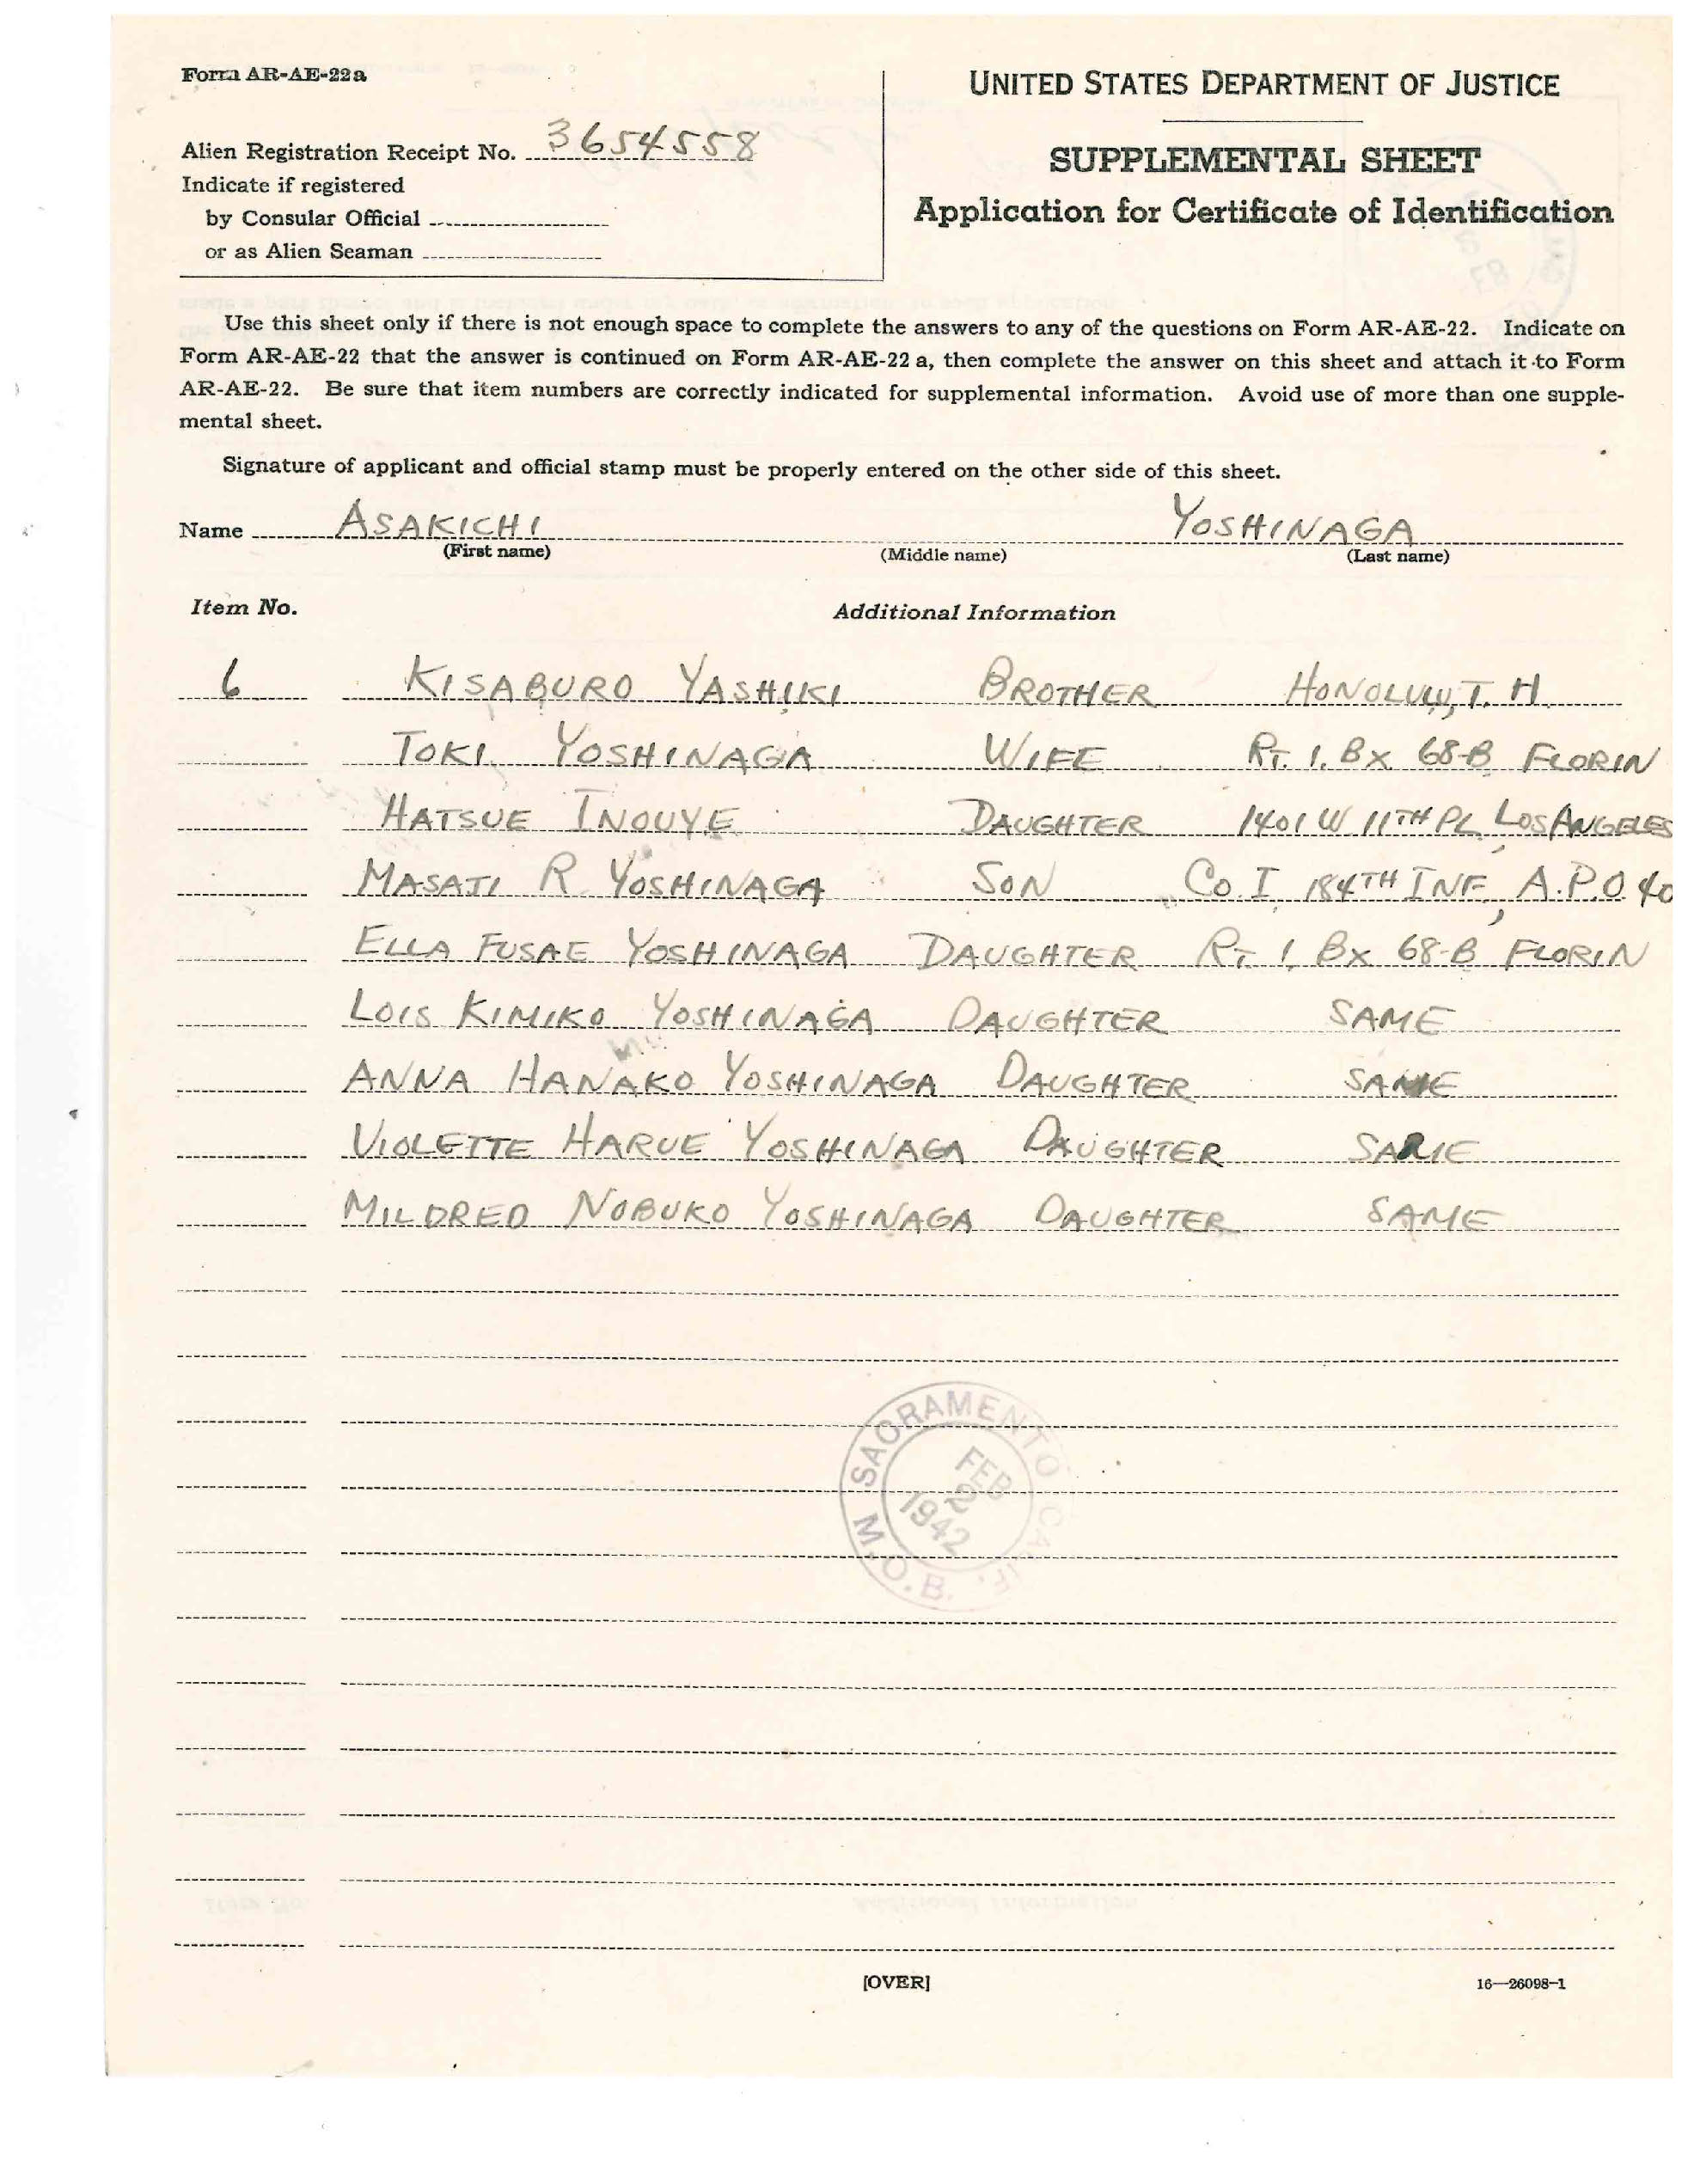 Form AR-AE-22a
Alien Registration Receipt No. 3654558
Indicate if registered
by Consular Official
or as Alien Seaman
UNITED STATES DEPARTMENT OF JUSTICE
SUPPLEMENTAL SHEET
Application for Certificate of Identification
Use this sheet only if there is not enough space to complete the answers to any of the questions on Form AR-AE-22. Indicate on
Form AR-AE-22 that the answer is continued on Form AR-AE-22 a, then complete the answer on this sheet and attach it to Form
AR-AE-22. Be sure that item numbers are correctly indicated for supplemental information. Avoid use of more than one supple-
mental sheet.
Signature of applicant and official stamp must be properly entered on the other side of this sheet.
Name ASAKICHI YOSHINAGA
(First name) (Middle name) (Last name)
Item No. Additional Information
6 KISABURO YASHIKI BROTHER HONOLULU, T. H.
TOKI YOSHINAGA WIFE RT. 1, BX 68-B FLORIN
HATSUE INOUYE DAUGHTER 1401 W 11TH PL, LOS ANGELES
MASATI R YOSHINAGA SON CO. I, 184TH INF, A.P.O. 40
ELLA FUSAE YOSHINAGA DAUGHTER RT 1, BX 68-B FLORIN
LOIS KIMIKO YOSHINAGA DAUGHTER SAME
ANNA HANAKO YOSHINAGA DAUGHTER SAME
VIOLETTE HARUE YOSHINAGA DAUGHTER SAME
MILDRED NOBUKO YOSHINAGA DAUGHTER SAME
SACRAMENTO CALIF.
FEB
2
1942
M.O.B.
[OVER]
16—26098-1